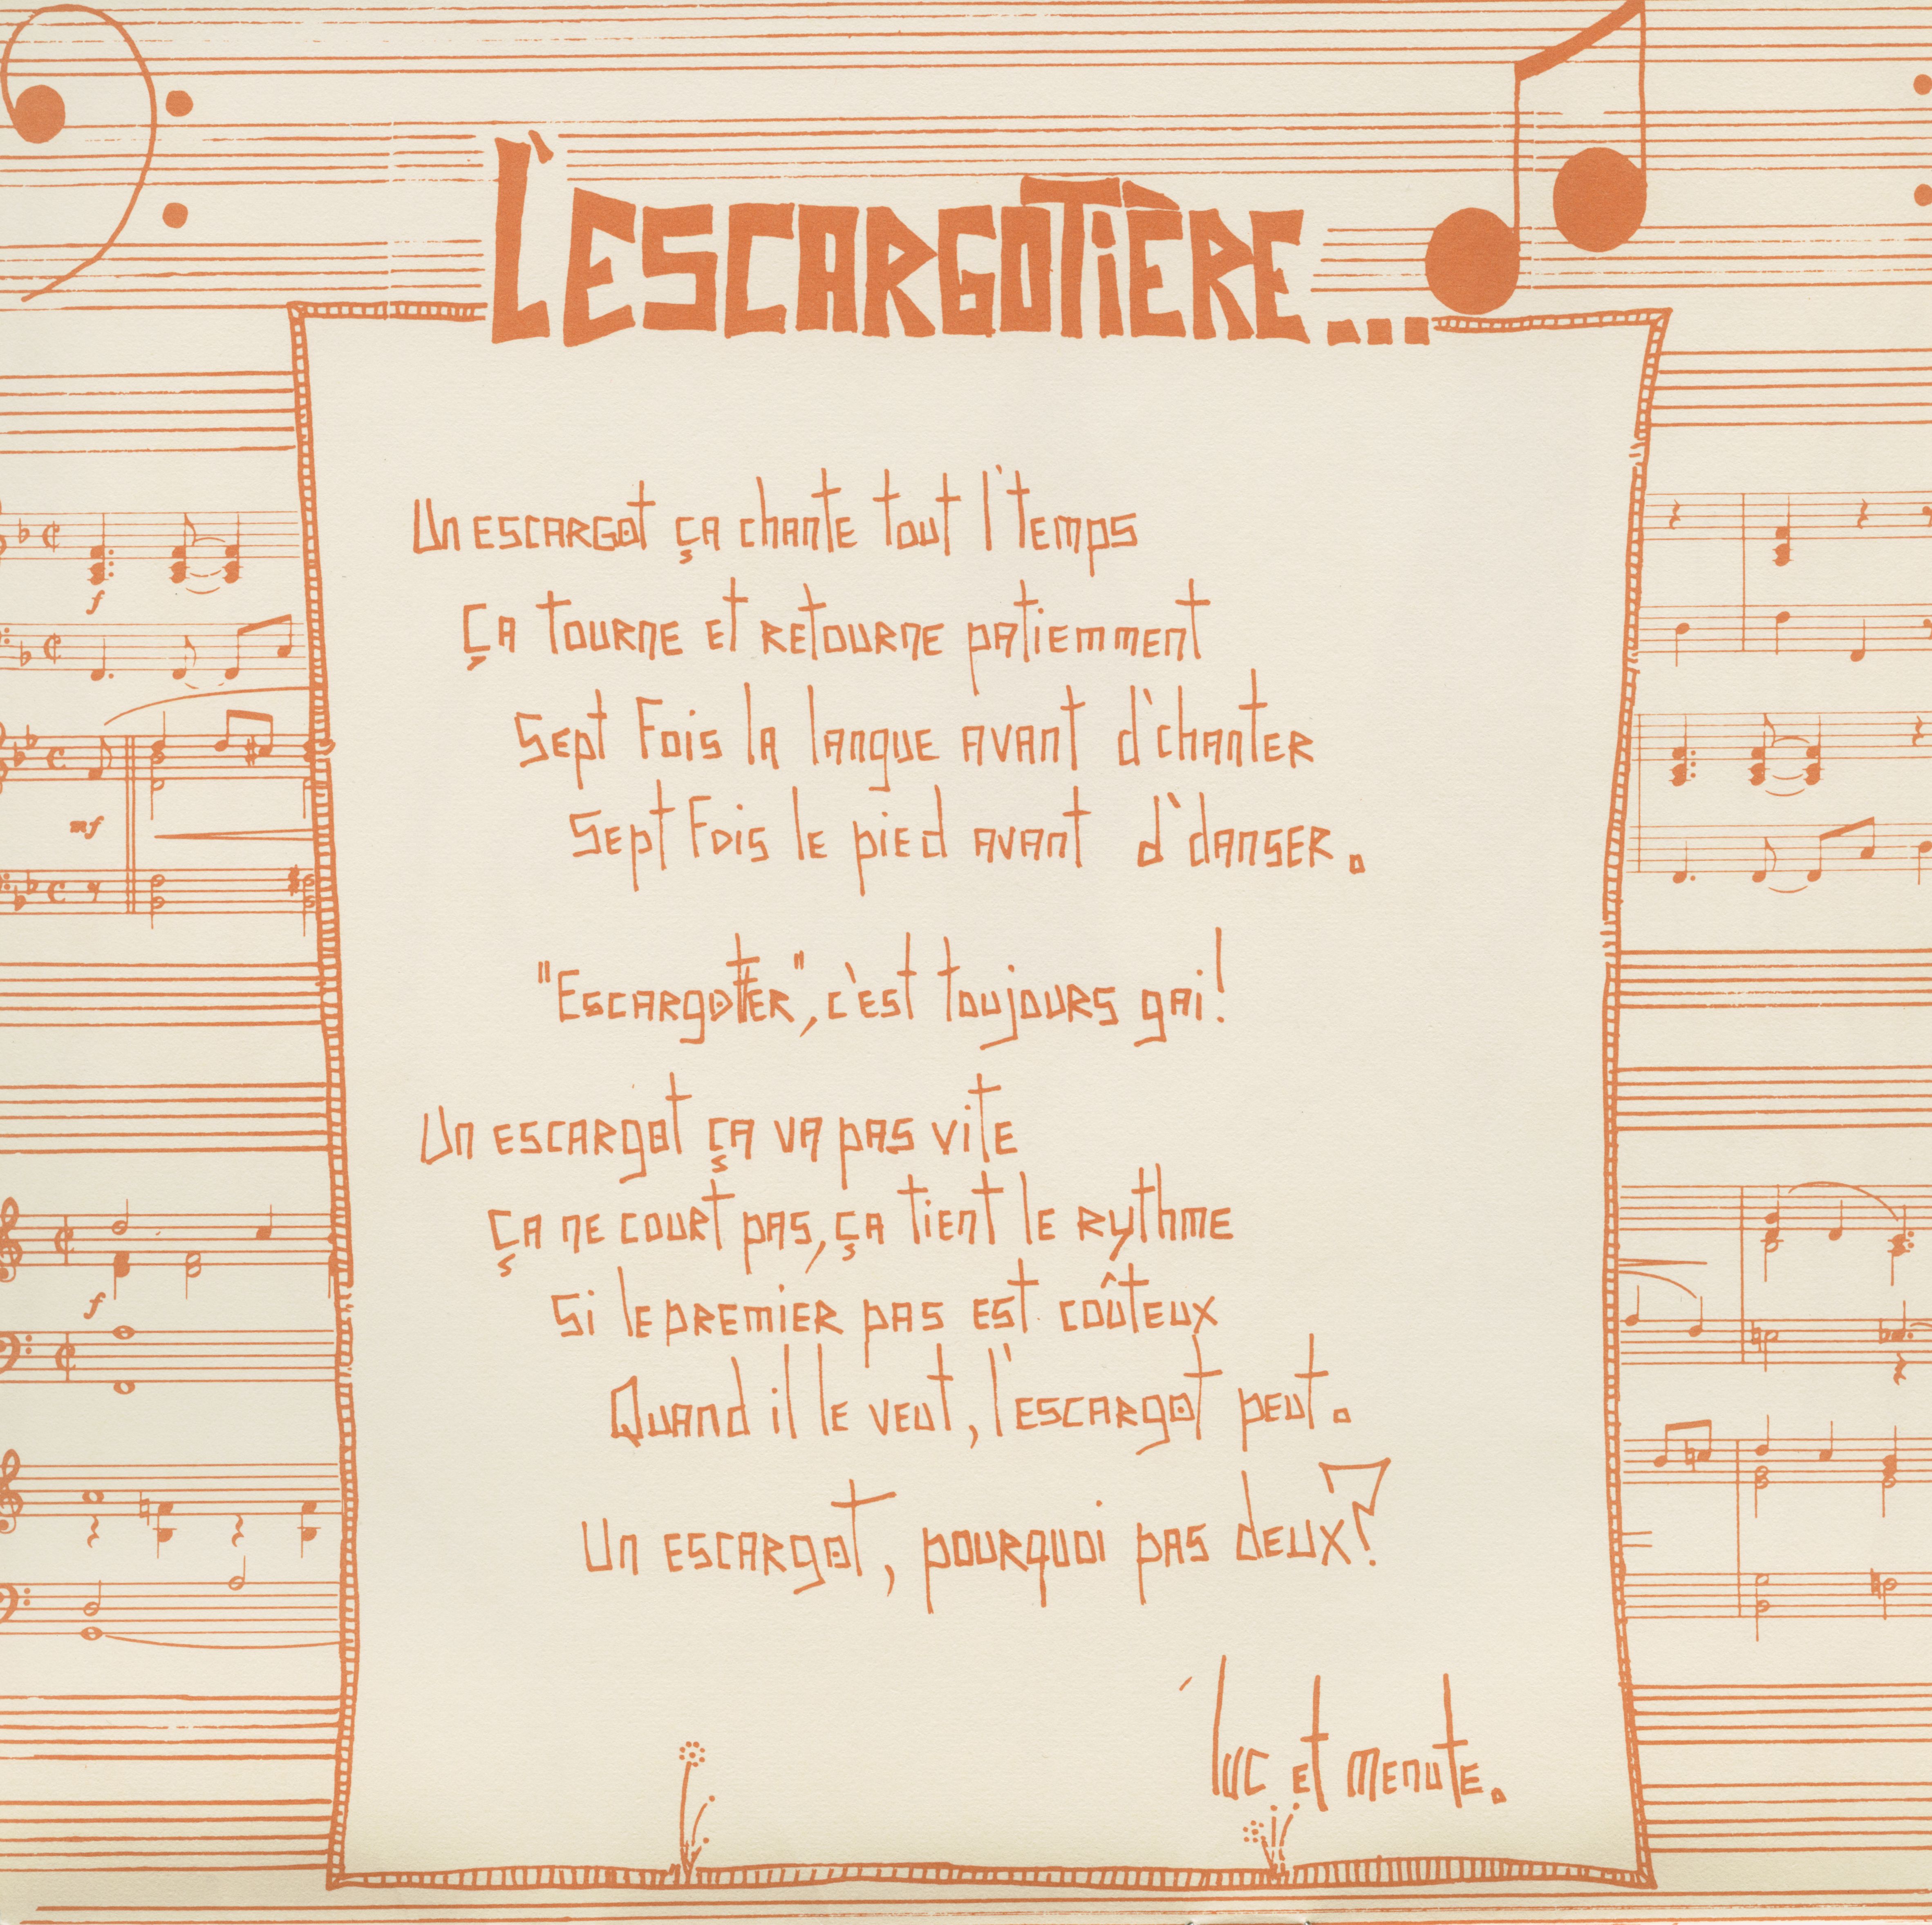 L'ESCARGOTIÈRE...
Un escargot ça chante tout l'temps
Ça tourne et retourne patiemment
Sept Fois la langue avant d'chanter
Sept Fois le pied avant d'danser.
"Escargotter", c'est toujours gai!
Un escargot ça va pas vite
Ça ne court pas, ça tient le rythme
Si le premier pas est coûteux
Quand il le veut, l'escargot peut.
Un escargot, pourquoi pas deux?
luc et menute.